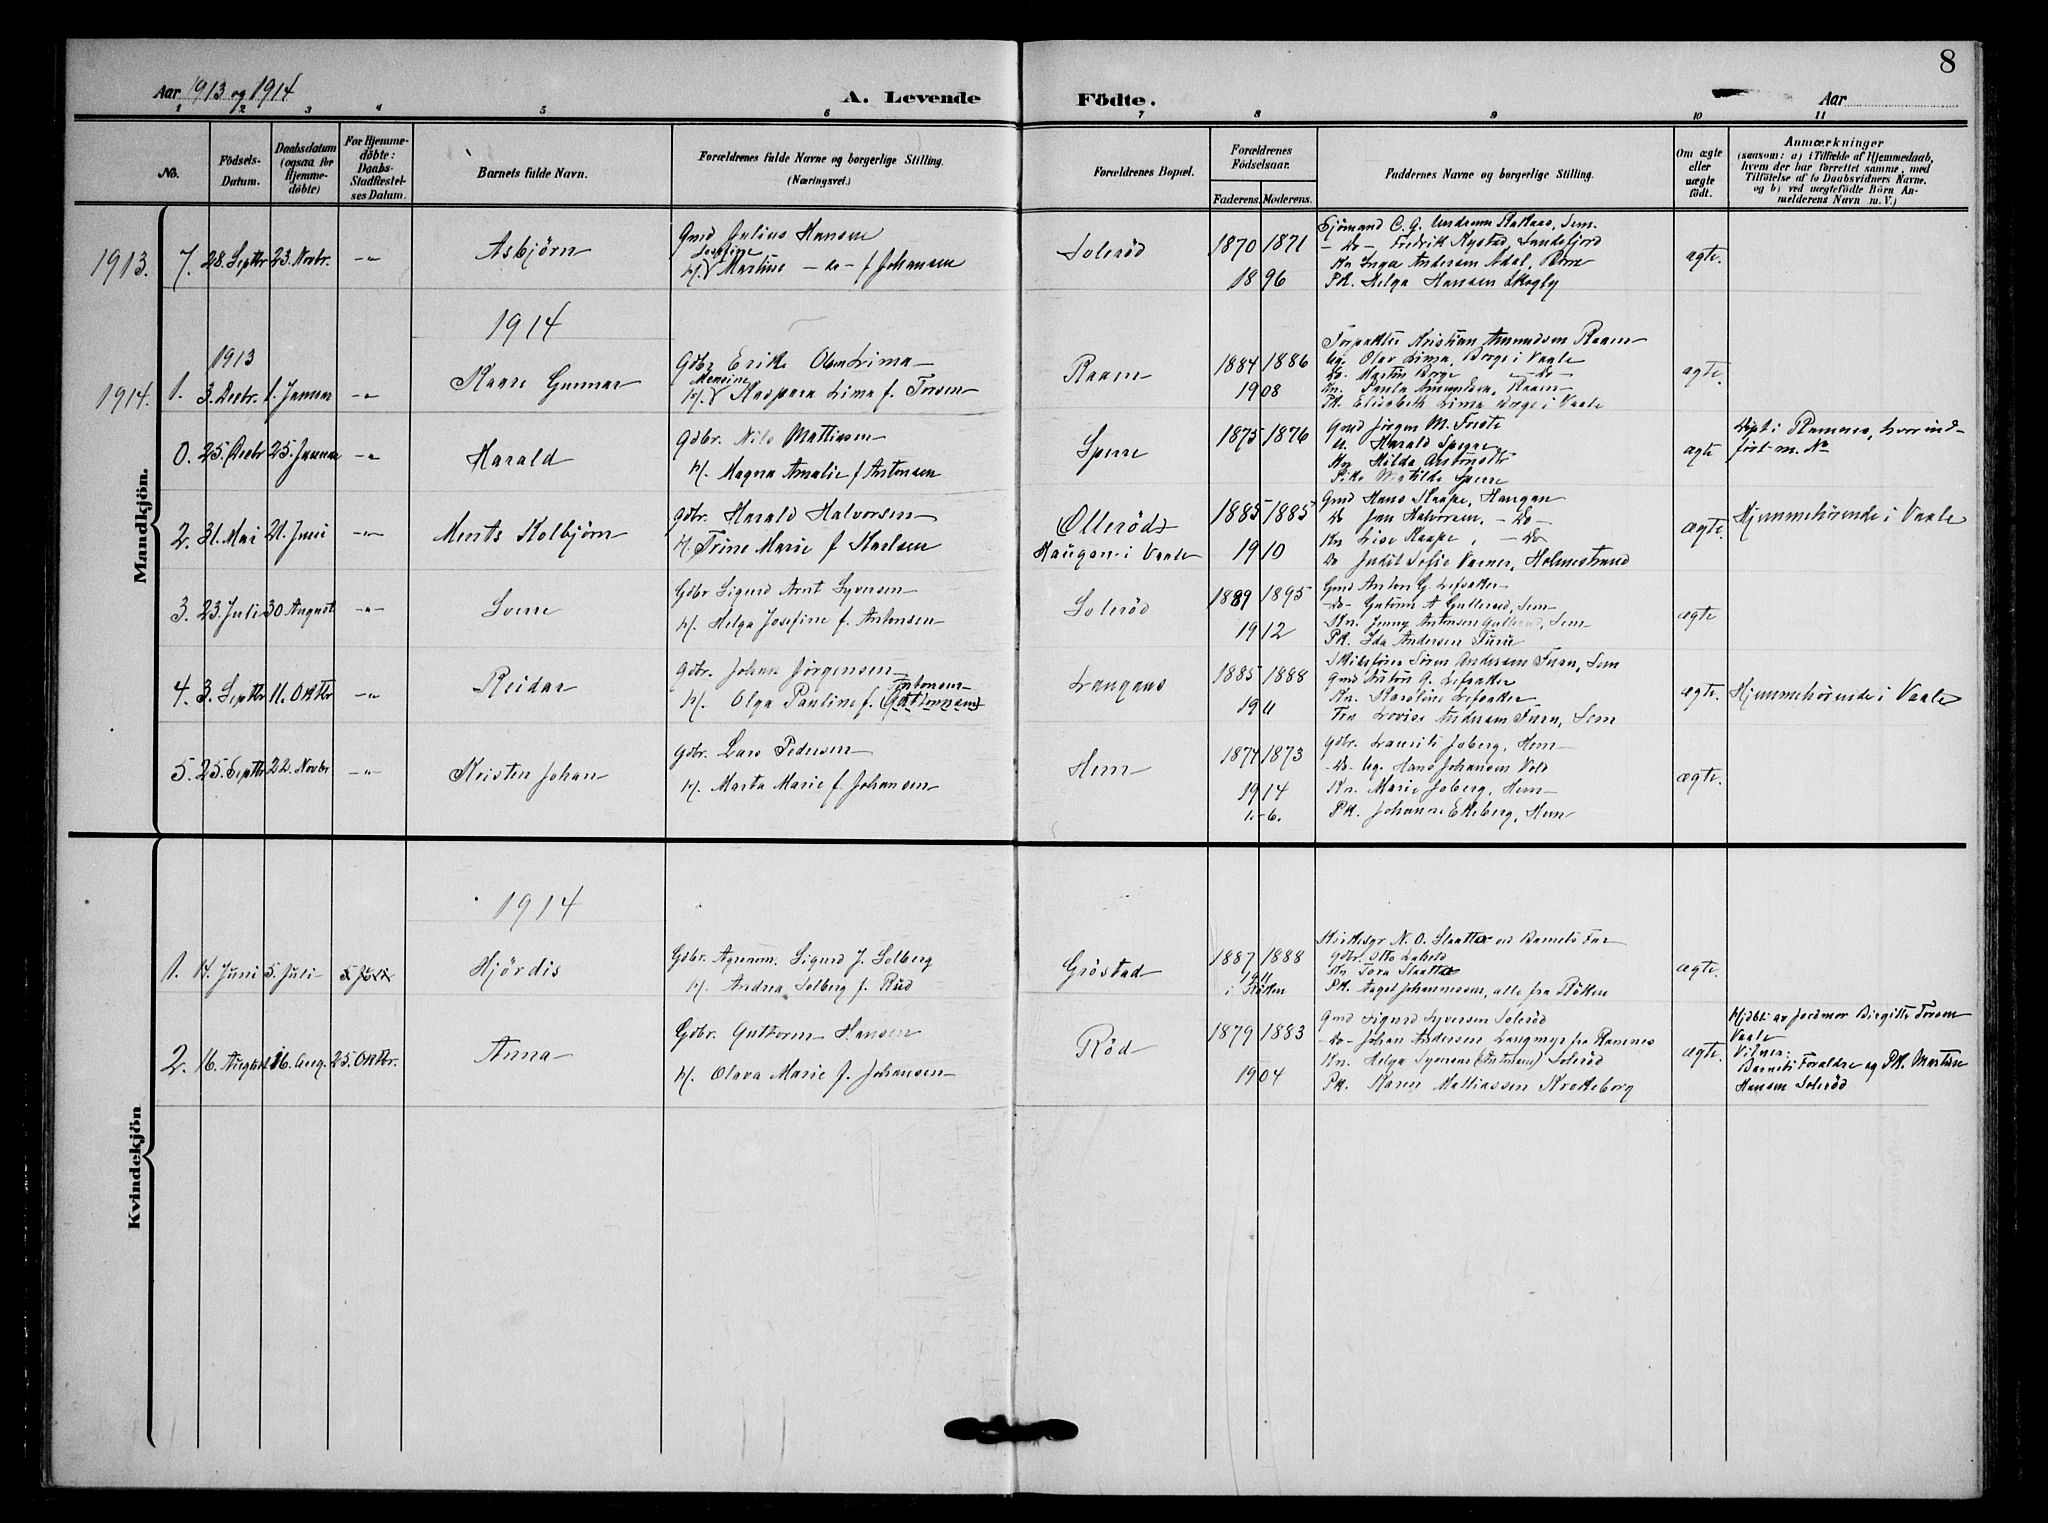 8
Aar 1913 og 1914
A. Levende Födte.
Aar
1 2 3 4 5 6 7 8 9 10 11
No.
Födsels-Datum.
Daabsdatum (ogsaa for Hjemme-döbte)
For Hjemme-döbte: Daabs-Stadfæstel-ses Datum.
Barnets fulde Navn.
Forældrenes fulde Navne og borgerlige Stilling.
(Næringsvei.)
Forældrenes Bopæl.
Forældrenes Födselsaar.
Faderens. Moderens.
Faddernes Navne og borgerlige Stilling.
Om ægte eller uægte födt.
Anmærkninger
(saasom: a) i Tilfælde af Hjemmedaab, hvem der har forrettet samme, med Tilföielse af to Daabsvidners Navne, og b) ved uægtefödte Börn An-melderens Navn m. V.)
Mandkjön.
1913. 7. 28. Septbr 23. Novbr. -„- Asbjørn
Gmd Julius Hansen
Josefine
h/. Martine - do - f Johansen
Solerød
1870 1871
1896
Sjömand C. G. Andersen Sem
- Do - Fredrik Nystad, Sandefjord
Kn Inga Andersen Adal, Borre
Pk. Helga Hansen Skogly
ægte.
1914
1913
1914. 1. 3. Decbr. 1. Januar -„- Kaare Gunnar
Gdbr Erik Olsen Lima
Mensine
h/. Kaspara Lima f. Torsen
Raaen
1884 1886
1908
Forpakter Kristian Amundsen Raaen
Ug. Olav Lima, Borge i Vaale
Do. Martin Borge - Do -
Kn. Paula Amundsen, Raaen
Pk. Elisabeth Lima Borge i Vaale
ægte.
0. 25. Decbr 25. Januar -„- Harald
Gdbr. Nils Mathisen
h/. Magna Amalie f Antonsen
Sperre
1875 1876
Gmd Jörgen M. Freste
U. Harald Sperre
Kn Hilda
Pike Matilde Sperre
ægte
Döpt i Ramnes, hvor ind-
ført m. No
2. 31. Mai 21. Juni -„- Ments Kolbjørn
Gdbr. Harald Halvorsen
h/. Trine Marie f Karlsen
Ollerød
Haugan i Vaale
1885 1885
1910
Gmd Hans Kaape, Haugan
Do Jan Halvorsen, - Do -
Kn Lise Kaape, - Do
Do Judit Sofie Varner, Holmestrand
ægte.
Hjemmehørende i Vaale
3. 23. Juli 30 August -„- Sverre
Gdbr Sigurd Arnt Syversen
h/. Helga Josefine f. Antonsen
Solerød
1889 1895
1912
Gmd Anton G. Lefsaker
- Do - A Gullerød, Sem
Kn. Jenny Antonsen Gullerød, Sem
Pk. Ida Andersen Furu
ægte
4. 3. Septbr 11. Oktbr -„- Reidar
Gdbr. Johan Jørgensen
Antonsen
h/. Olga Pauline f. (Guttormsen)
Langaas
1885 1888
1911
Skibsfører Søren Andersen Furu, Sem
Gmd Anton G. Lefsaker
Kn. Karoline Lefsaker
Frk Lovise Andersen Furu, Sem
ægte.
Hjemmehørende i Vaale
5. 25. Septbr 22. Novbr -„- Kristen Johan
Gdbr. Lars Pedersen
h/. Marta Marie f. Johansen
Hem
1874 1873
1914
1.-6.
Gdbr. Laurits Joberg, Hem
- Do - Ug. Hans Johansen Vold
Kn. Marie Joberg, Hem
Pk. Johanne Ekeberg, Hem
ægte.
Kvindekjön
1914
1. 14. Juni 5. Juli 5. Juli Hjørdis
Gdbr. Agronom. Sigurd J. Solberg
h/. Andrea Solberg f. Rud
Grøstad
1887 1888
1911
i Røken
Kirkesgr N. O. Slaatta ved Barnets Far
Gdbr. Otto
Kn Tora Slaatta
Pk. Aagot Johannessen, alle fra Røken
ægte.
2. 16. August 16. Aug. 25. Oktbr. Anna
Gdbr. Guttorm Hansen
h/. Olava Marie f. Johansen
Rød
1879 1883
1904
Gmd Sigurd Syversen Solerød
- Do - Johan Andersen Langmyr fra Ramnes
Kn. Helga Syversen (Antonsen) Solerød
Pk. Karen Mathiassen Krokeborg
ægte.
Hjdbt av Jordmor Birgitte Torsen
Vaale
Vidner:
Barnets Forældre og Pk. Martine
Hansen Solerød